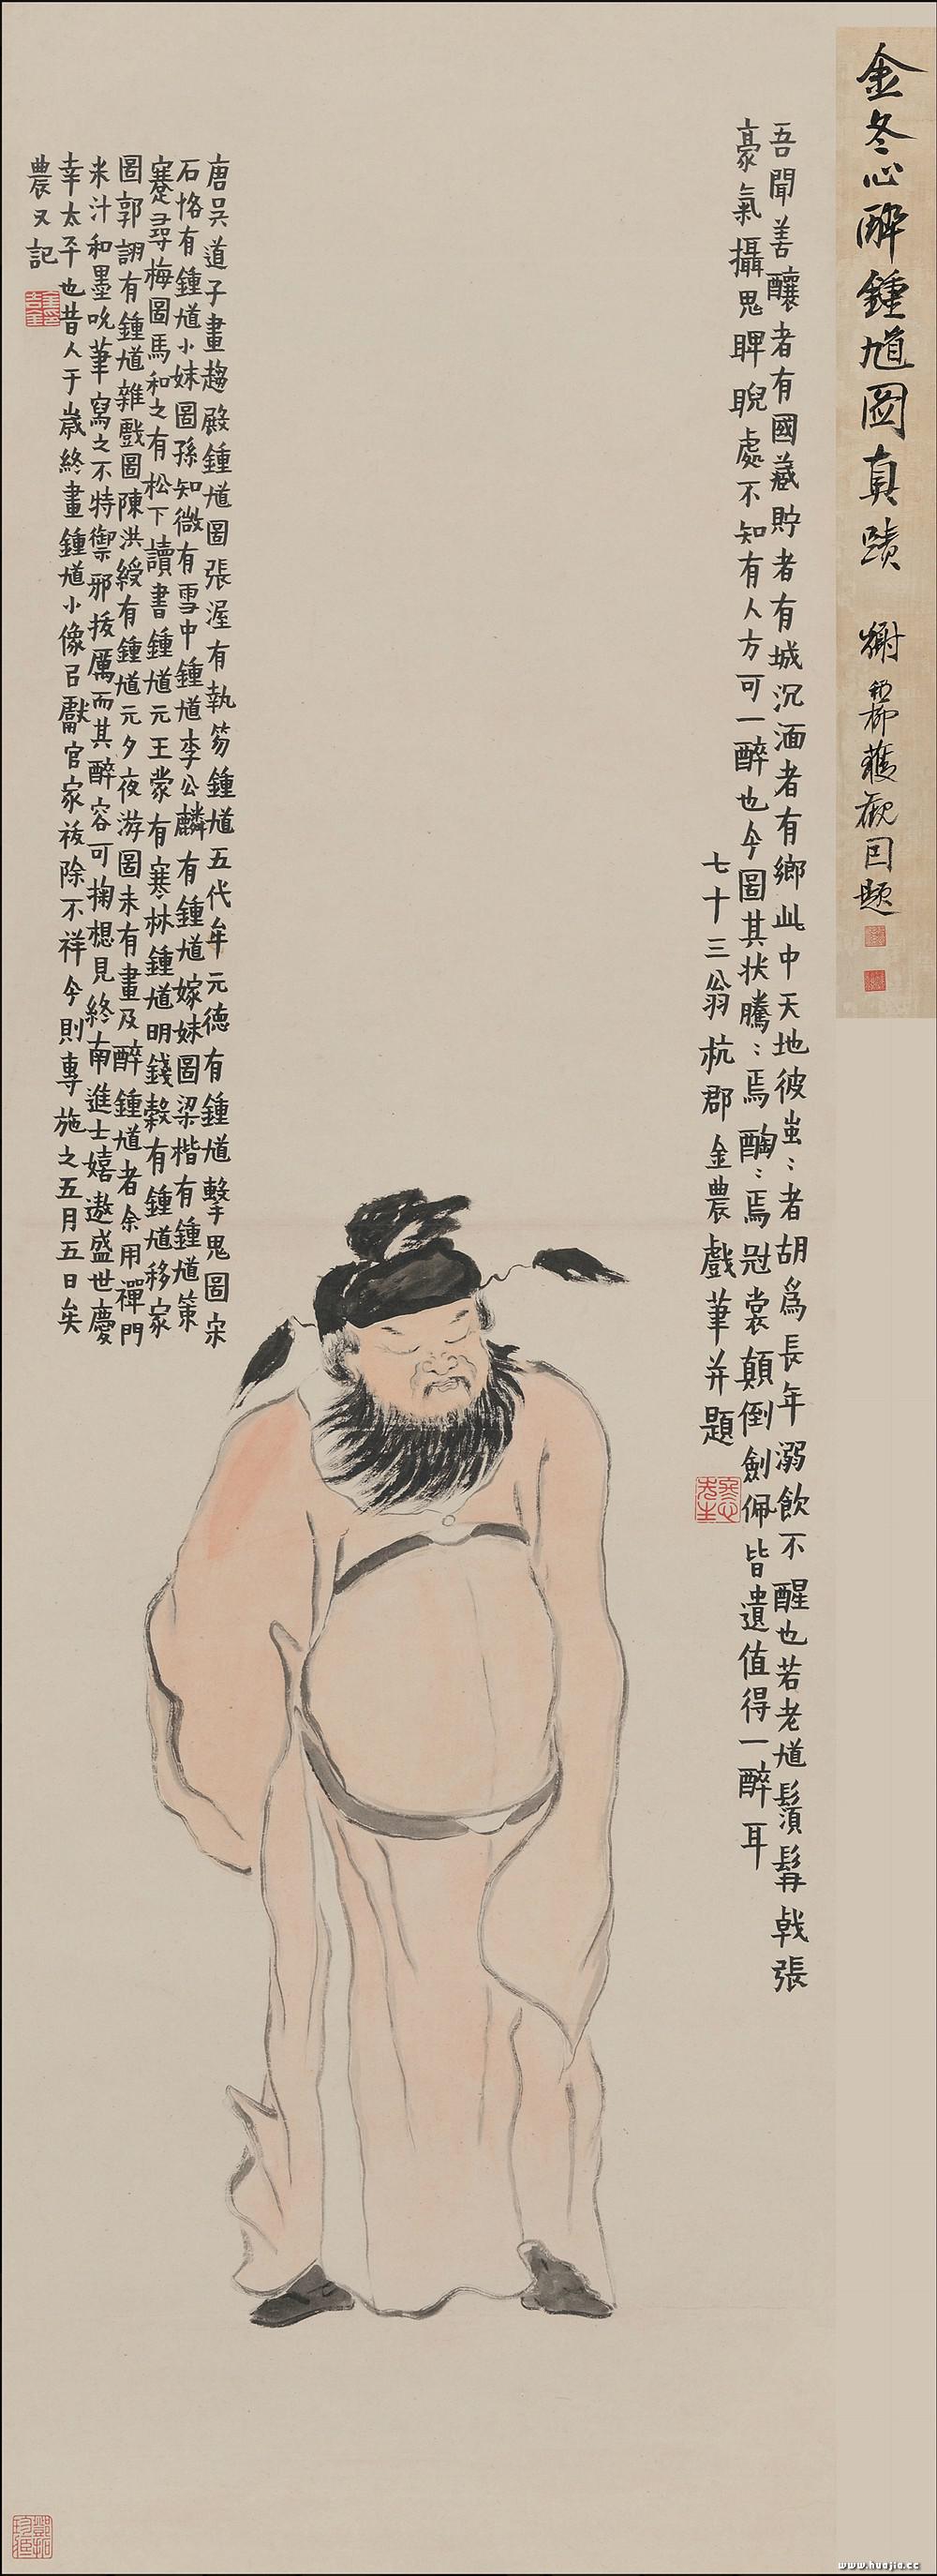 金冬心醉鍾馗圖真蹟
獲觀因題
吾聞善釀者有國藏貯者有城沉湎者有鄉此中天地彼蚩：者胡為長年溺飲不醒也若老馗鬚髯戟張
豪氣攝鬼睥睨處不知有人方可一醉也今圖其狀騰：焉醄：焉冠裳顛倒劍佩皆遺值得一醉耳
七十三翁杭郡金農戲筆并題
唐吳道子畫趨殿鍾馗圖張渥有執笏鍾馗五代牟元德有鍾馗擊鬼圖宋
石恪有鍾馗小妹圖孫知微有雪中鍾馗李公麟有鍾馗嫁妹圖梁楷有鍾馗策
蹇尋梅圖馬和之有松下讀書鍾馗元王蒙有寒林鍾馗明錢穀有鍾馗移家
圖郭詡有鍾馗雜戲圖陳洪綬有鍾馗元夕夜游圖未有畫及醉鍾馗者余用禪門
米汁和墨吮筆寫之不特禦邪拔厲而其醉容可掬想見終南進士嬉遨盛世慶
幸太平也昔人于歲終畫鍾馗小像㠯獻官家祓除不祥今則專施之五月五日矣
農又記
www.huajia.cc